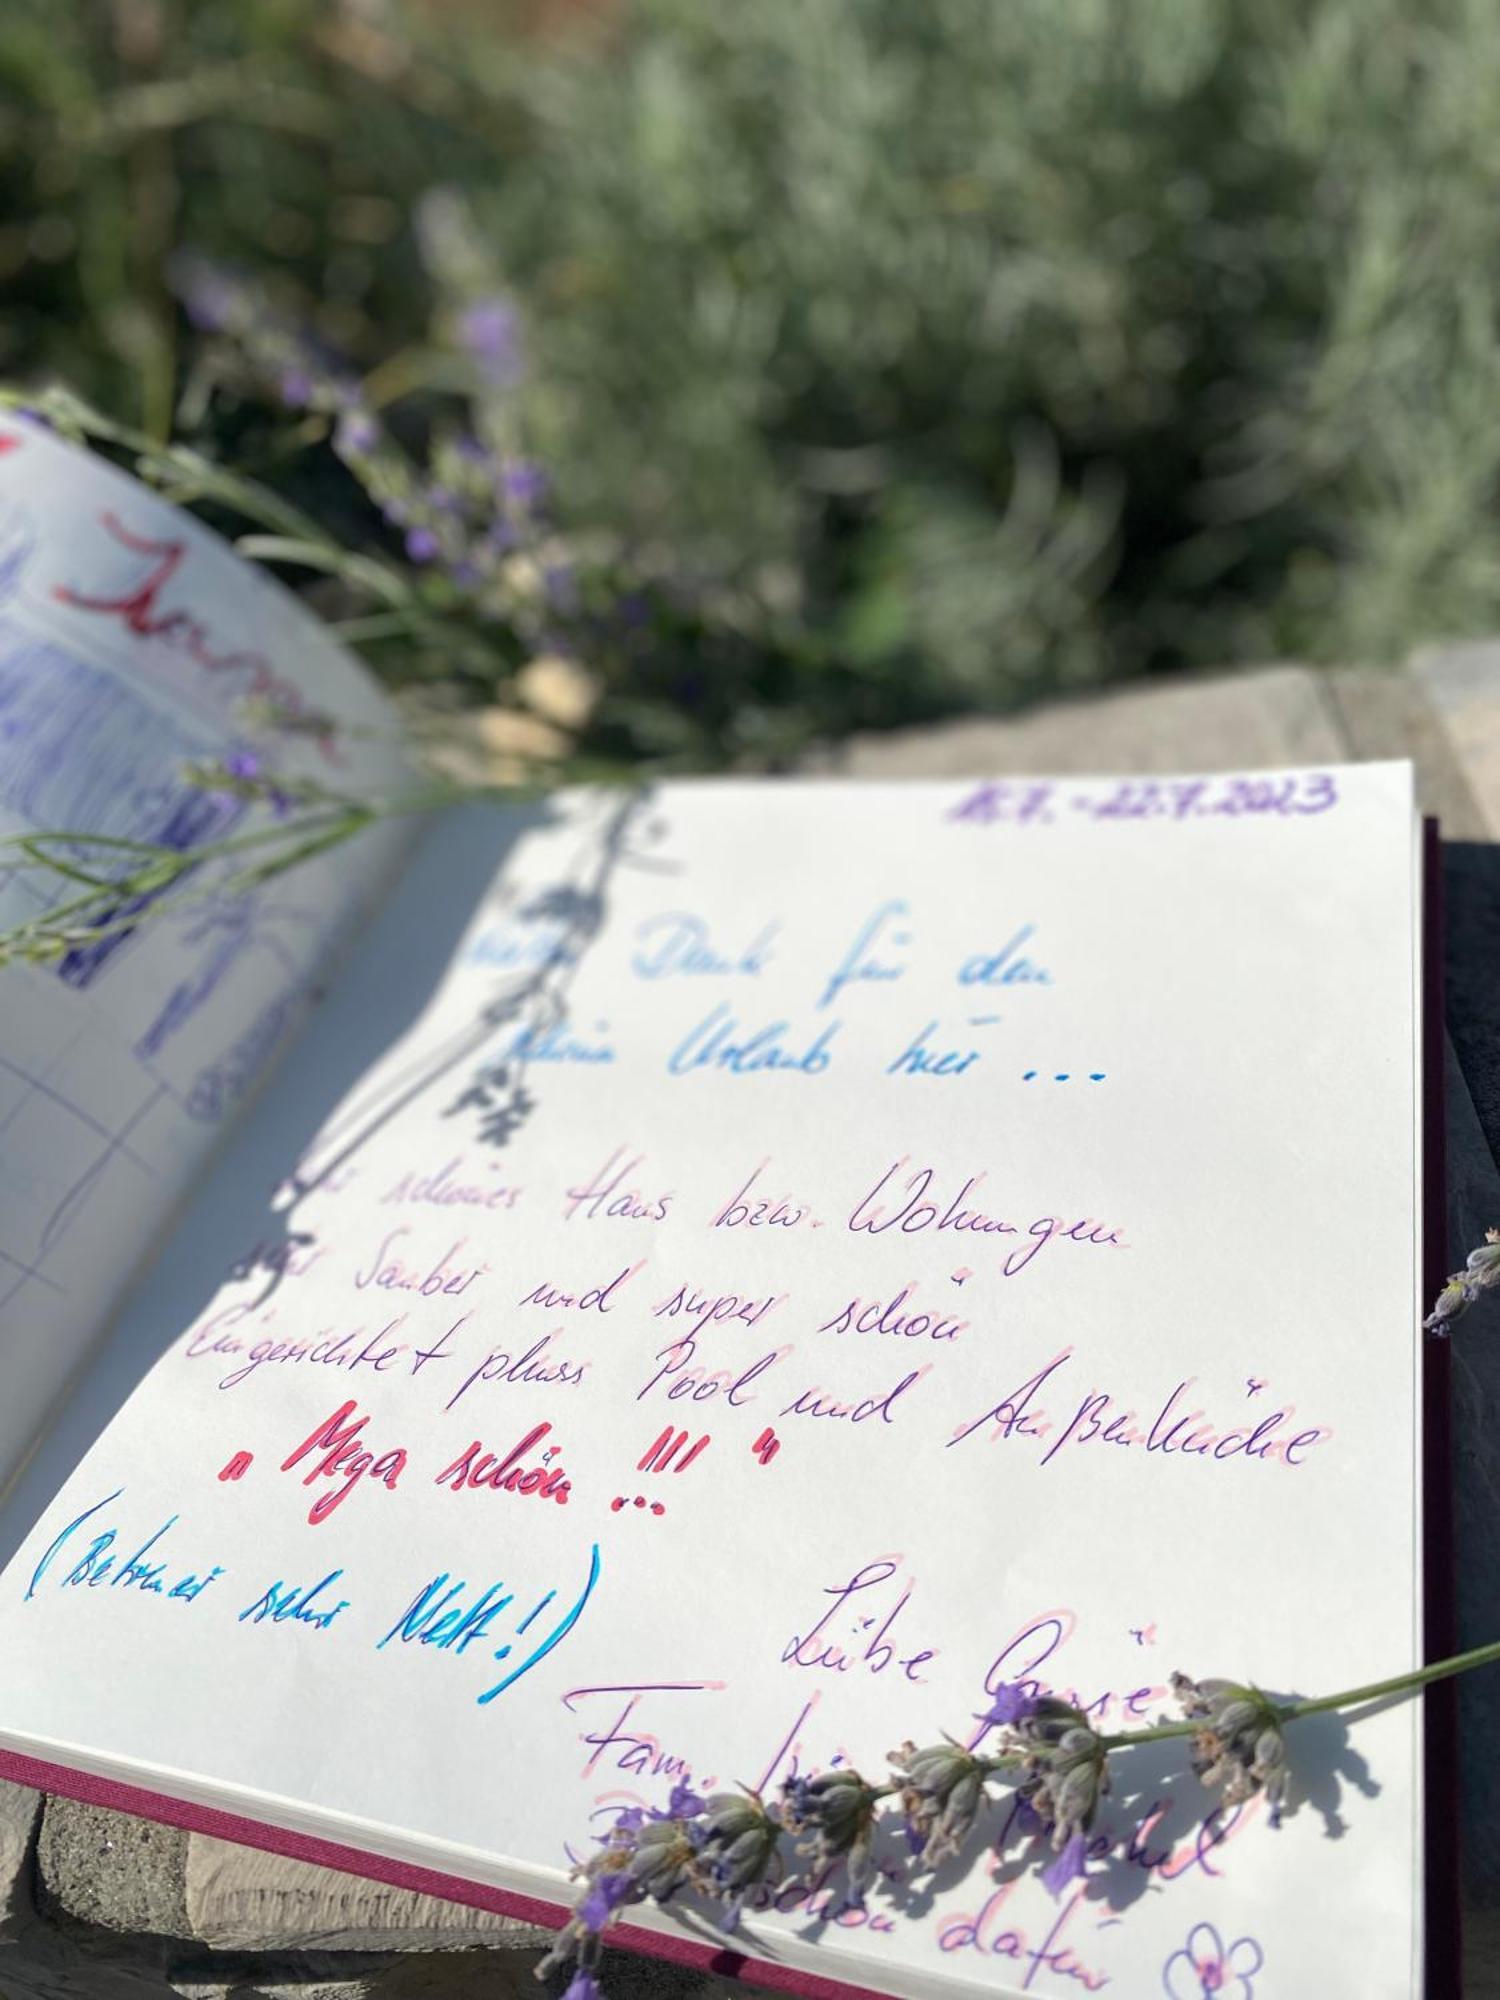 Dank für den
Urlaub hier ...
schönes Haus bzw. Wohnungen
Sauber und super schön
Eingerichtet pluss Pool und Außenküche
„Mega schön !!!“
(Betreuer sehr Nett!)
Liebe Grüsse
Fam.
schön dafür